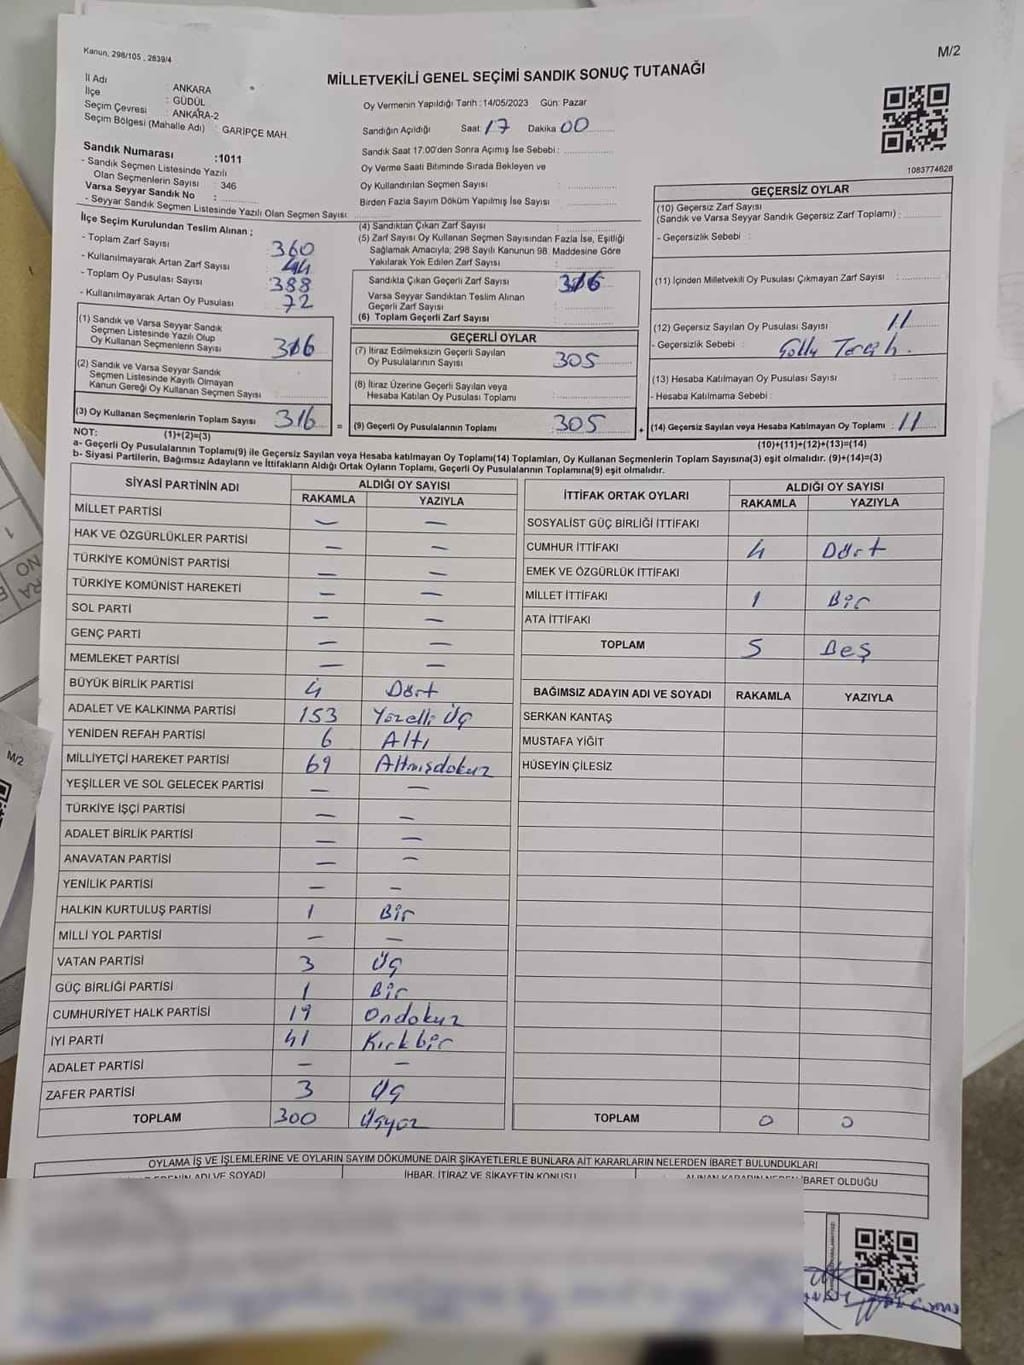 Kanun, 298/105 , 2839/4
M/2
MİLLETVEKİLİ GENEL SEÇİMİ SANDIK SONUÇ TUTANAĞI
İl Adı : ANKARA
İlçe : GÜDÜL
Seçim Çevresi : ANKARA-2
Seçim Bölgesi (Mahalle Adı) : GARİPÇE MAH.
Sandık Numarası :1011
- Sandık Seçmen Listesinde Yazılı
Olan Seçmenlerin Sayısı : 346
Varsa Seyyar Sandık No :
- Seyyar Sandık Seçmen Listesinde Yazılı Olan Seçmen Sayısı:
Oy Vermenin Yapıldığı Tarih :14/05/2023 Gün: Pazar
Sandığın Açıldığı Saat: 17 Dakika 00
Sandık Saat 17.00'den Sonra Açımış İse Sebebi :
Oy Verme Saati Bitiminde Sırada Bekleyen ve
Oy Kullandırılan Seçmen Sayısı :
Birden Fazla Sayım Döküm Yapılmış İse Sayısı :
1083774628
İlçe Seçim Kurulundan Teslim Alınan ;
- Toplam Zarf Sayısı : 360
- Kullanılmayarak Artan Zarf Sayısı : 44
- Toplam Oy Pusulası Sayısı : 388
- Kullanılmayarak Artan Oy Pusulası : 72
(1) Sandık ve Varsa Seyyar Sandık
Seçmen Listesinde Yazılı Olup
Oy Kullanan Seçmenlerin Sayısı : 316
(2) Sandık ve Varsa Seyyar Sandık
Seçmen Listesinde Kayıtlı Olmayan
Kanun Gereği Oy Kullanan Seçmen Sayısı :
(3) Oy Kullanan Seçmenlerin Toplam Sayısı : 316 =
(1)+(2)=(3)
(4) Sandıktan Çıkan Zarf Sayısı :
(5) Zarf Sayısı Oy Kullanan Seçmen Sayısından Fazla İse, Eşitliği
Sağlamak Amacıyla; 298 Sayılı Kanunun 98. Maddesine Göre
Yakılarak Yok Edilen Zarf Sayısı :
Sandıkla Çıkan Geçerli Zarf Sayısı : 316
Varsa Seyyar Sandıktan Teslim Alınan
Geçerli Zarf Sayısı :
(6) Toplam Geçerli Zarf Sayısı :
GEÇERLİ OYLAR
(7) İtiraz Edilmeksizin Geçerli Sayılan
Oy Pusulalarının Sayısı : 305
(8) İtiraz Üzerine Geçerli Sayılan veya
Hesaba Katılan Oy Pusulası Toplamı :
(9) Geçerli Oy Pusulalarının Toplamı : 305 +
GEÇERSİZ OYLAR
(10) Geçersiz Zarf Sayısı
(Sandık ve Varsa Seyyar Sandık Geçersiz Zarf Toplamı) :
- Geçersizlik Sebebi :
(11) İçinden Milletvekili Oy Pusulası Çıkmayan Zarf Sayısı :
(12) Geçersiz Sayılan Oy Pusulası Sayısı : 11
- Geçersizlik Sebebi :
(13) Hesaba Katılmayan Oy Pusulası Sayısı :
- Hesaba Katılmama Sebebi :
(14) Geçersiz Sayılan veya Hesaba Katılmayan Oy Toplamı : 11
(10)+(11)+(12)+(13)=(14)
NOT:
a- Geçerli Oy Pusulalarının Toplamı(9) ile Geçersiz Sayılan veya Hesaba katılmayan Oy Toplamı(14) Toplamları, Oy Kullanan Seçmenlerin Toplam Sayısına(3) eşit olmalıdır. (9)+(14)=(3)
b- Siyasi Partilerin, Bağımsız Adayların ve İttifakların Aldığı Ortak Oyların Toplamı, Geçerli Oy Pusulalarının Toplamına(9) eşit olmalıdır.
SİYASİ PARTİNİN ADI ALDIĞI OY SAYISI
RAKAMLA YAZIYLA
MİLLET PARTİSİ — —
HAK VE ÖZGÜRLÜKLER PARTİSİ — —
TÜRKİYE KOMÜNİST PARTİSİ — —
TÜRKİYE KOMÜNİST HAREKETİ — —
SOL PARTİ — —
GENÇ PARTİ — —
MEMLEKET PARTİSİ — —
BÜYÜK BİRLİK PARTİSİ 4 Dört
ADALET VE KALKINMA PARTİSİ 153 Yüzelli Üç
YENİDEN REFAH PARTİSİ 6 Altı
MİLLİYETÇİ HAREKET PARTİSİ 69 Altmışdokuz
YEŞİLLER VE SOL GELECEK PARTİSİ — —
TÜRKİYE İŞÇİ PARTİSİ — —
ADALET BİRLİK PARTİSİ — —
ANAVATAN PARTİSİ — —
YENİLİK PARTİSİ — —
HALKIN KURTULUŞ PARTİSİ 1 Bir
MİLLİ YOL PARTİSİ — —
VATAN PARTİSİ 3 Üç
GÜÇ BİRLİĞİ PARTİSİ 1 Bir
CUMHURİYET HALK PARTİSİ 19 Ondokuz
İYİ PARTİ 41 Kırkbir
ADALET PARTİSİ — —
ZAFER PARTİSİ 3 Üç
TOPLAM 300 Üçyüz
İTTİFAK ORTAK OYLARI ALDIĞI OY SAYISI
RAKAMLA YAZIYLA
SOSYALİST GÜÇ BİRLİĞİ İTTİFAKI
CUMHUR İTTİFAKI 4 Dört
EMEK VE ÖZGÜRLÜK İTTİFAKI
MİLLET İTTİFAKI 1 Bir
ATA İTTİFAKI
TOPLAM 5 Beş
BAĞIMSIZ ADAYIN ADI VE SOYADI RAKAMLA YAZIYLA
SERKAN KANTAŞ
MUSTAFA YİĞİT
HÜSEYİN ÇİLESİZ
TOPLAM 0 0
OYLAMA İŞ VE İŞLEMLERİNE VE OYLARIN SAYIM DÖKÜMÜNE DAİR ŞİKAYETLERLE BUNLARA AİT KARARLARIN NELERDEN İBARET BULUNDUKLARI
ADI VE SOYADI İHBAR, İTİRAZ VE ŞİKAYETİN KONUSU İBARET OLDUĞU
M/2